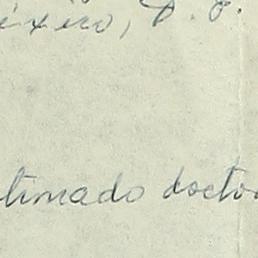 éxico, D. F.
timado doctor